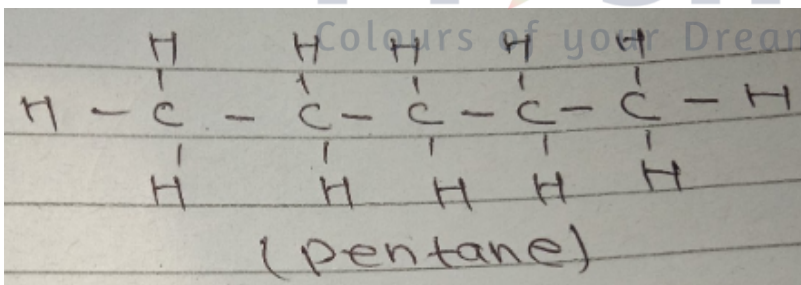 Colours of your Dream
H H H H H
H - C - C - C - C - C - H
H H H H H
(pentane)